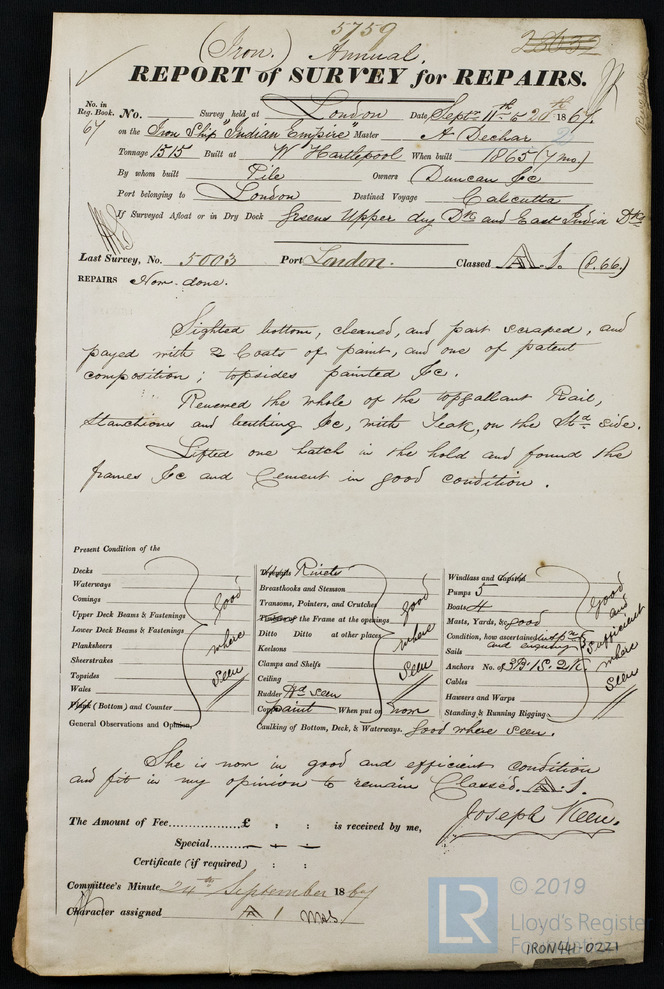 5759
(Iron.) Annual.
REPORT of SURVEY for REPAIRS.
No. in Reg. Book. 67 No. Survey held at London Date, Septr 11th to 20th 1867.
on the Iron Ship "Indian Empire" Master A Dechar
Tonnage 1515 Built at W Hartlepool When built 1865 (7 mo)
By whom built Pile Owners Duncan &c
Port belonging to London Destined Voyage Calcutta
If Surveyed Afloat or in Dry Dock Greens Upper dry Dk and East India Dks
Last Survey, No. 5003 Port London. Classed A.1. (8.66.)
REPAIRS Now done.
Sighted bottom, cleaned, and part scraped, and
payed with 2 Coats of paint, and one of patent
composition; topsides painted &c.
Renewed the whole of the topgallant Rail,
Stanchions and berthing &c, with Teak, on the Std side.
Lifted one hatch in the hold and found the
frames &c and Cement in good condition.
Present Condition of the
Decks
Waterways
Comings
Upper Deck Beams & Fastenings
Lower Deck Beams & Fastenings
Planksheers
Sheerstrakes
Topsides
Wales
(Bottom) and Counter
General Observations and Opinion,
good where seen
Rivets
Breasthooks and Stemson
Transoms, Pointers, and Crutches
of the Frame at the openings
Ditto Ditto at other places
Keelsons
Clamps and Shelfs
Ceiling
Rudder Hd seen
paint When put on now
Caulking of Bottom, Deck, & Waterways. Good where seen.
good where seen
Windlass and Capstan
Pumps 5
Boats 4
Masts, Yards, &c. good
Condition, how ascertained
and enquiry
Sails
Anchors No. of 3B. 1S. 2K
Cables
Hawsers and Warps
Standing & Running Rigging
Good and Sufficient where seen
She is now in good and efficient condition
and fit in my opinion to remain Classed. A.1.
Joseph Keen.
The Amount of Fee £ : : is received by me,
Special
Certificate (if required) : :
Committee's Minute 24th September 1867
Character assigned A 1
© 2019
LR
Lloyd's Register
Foundation
IRON441-0221